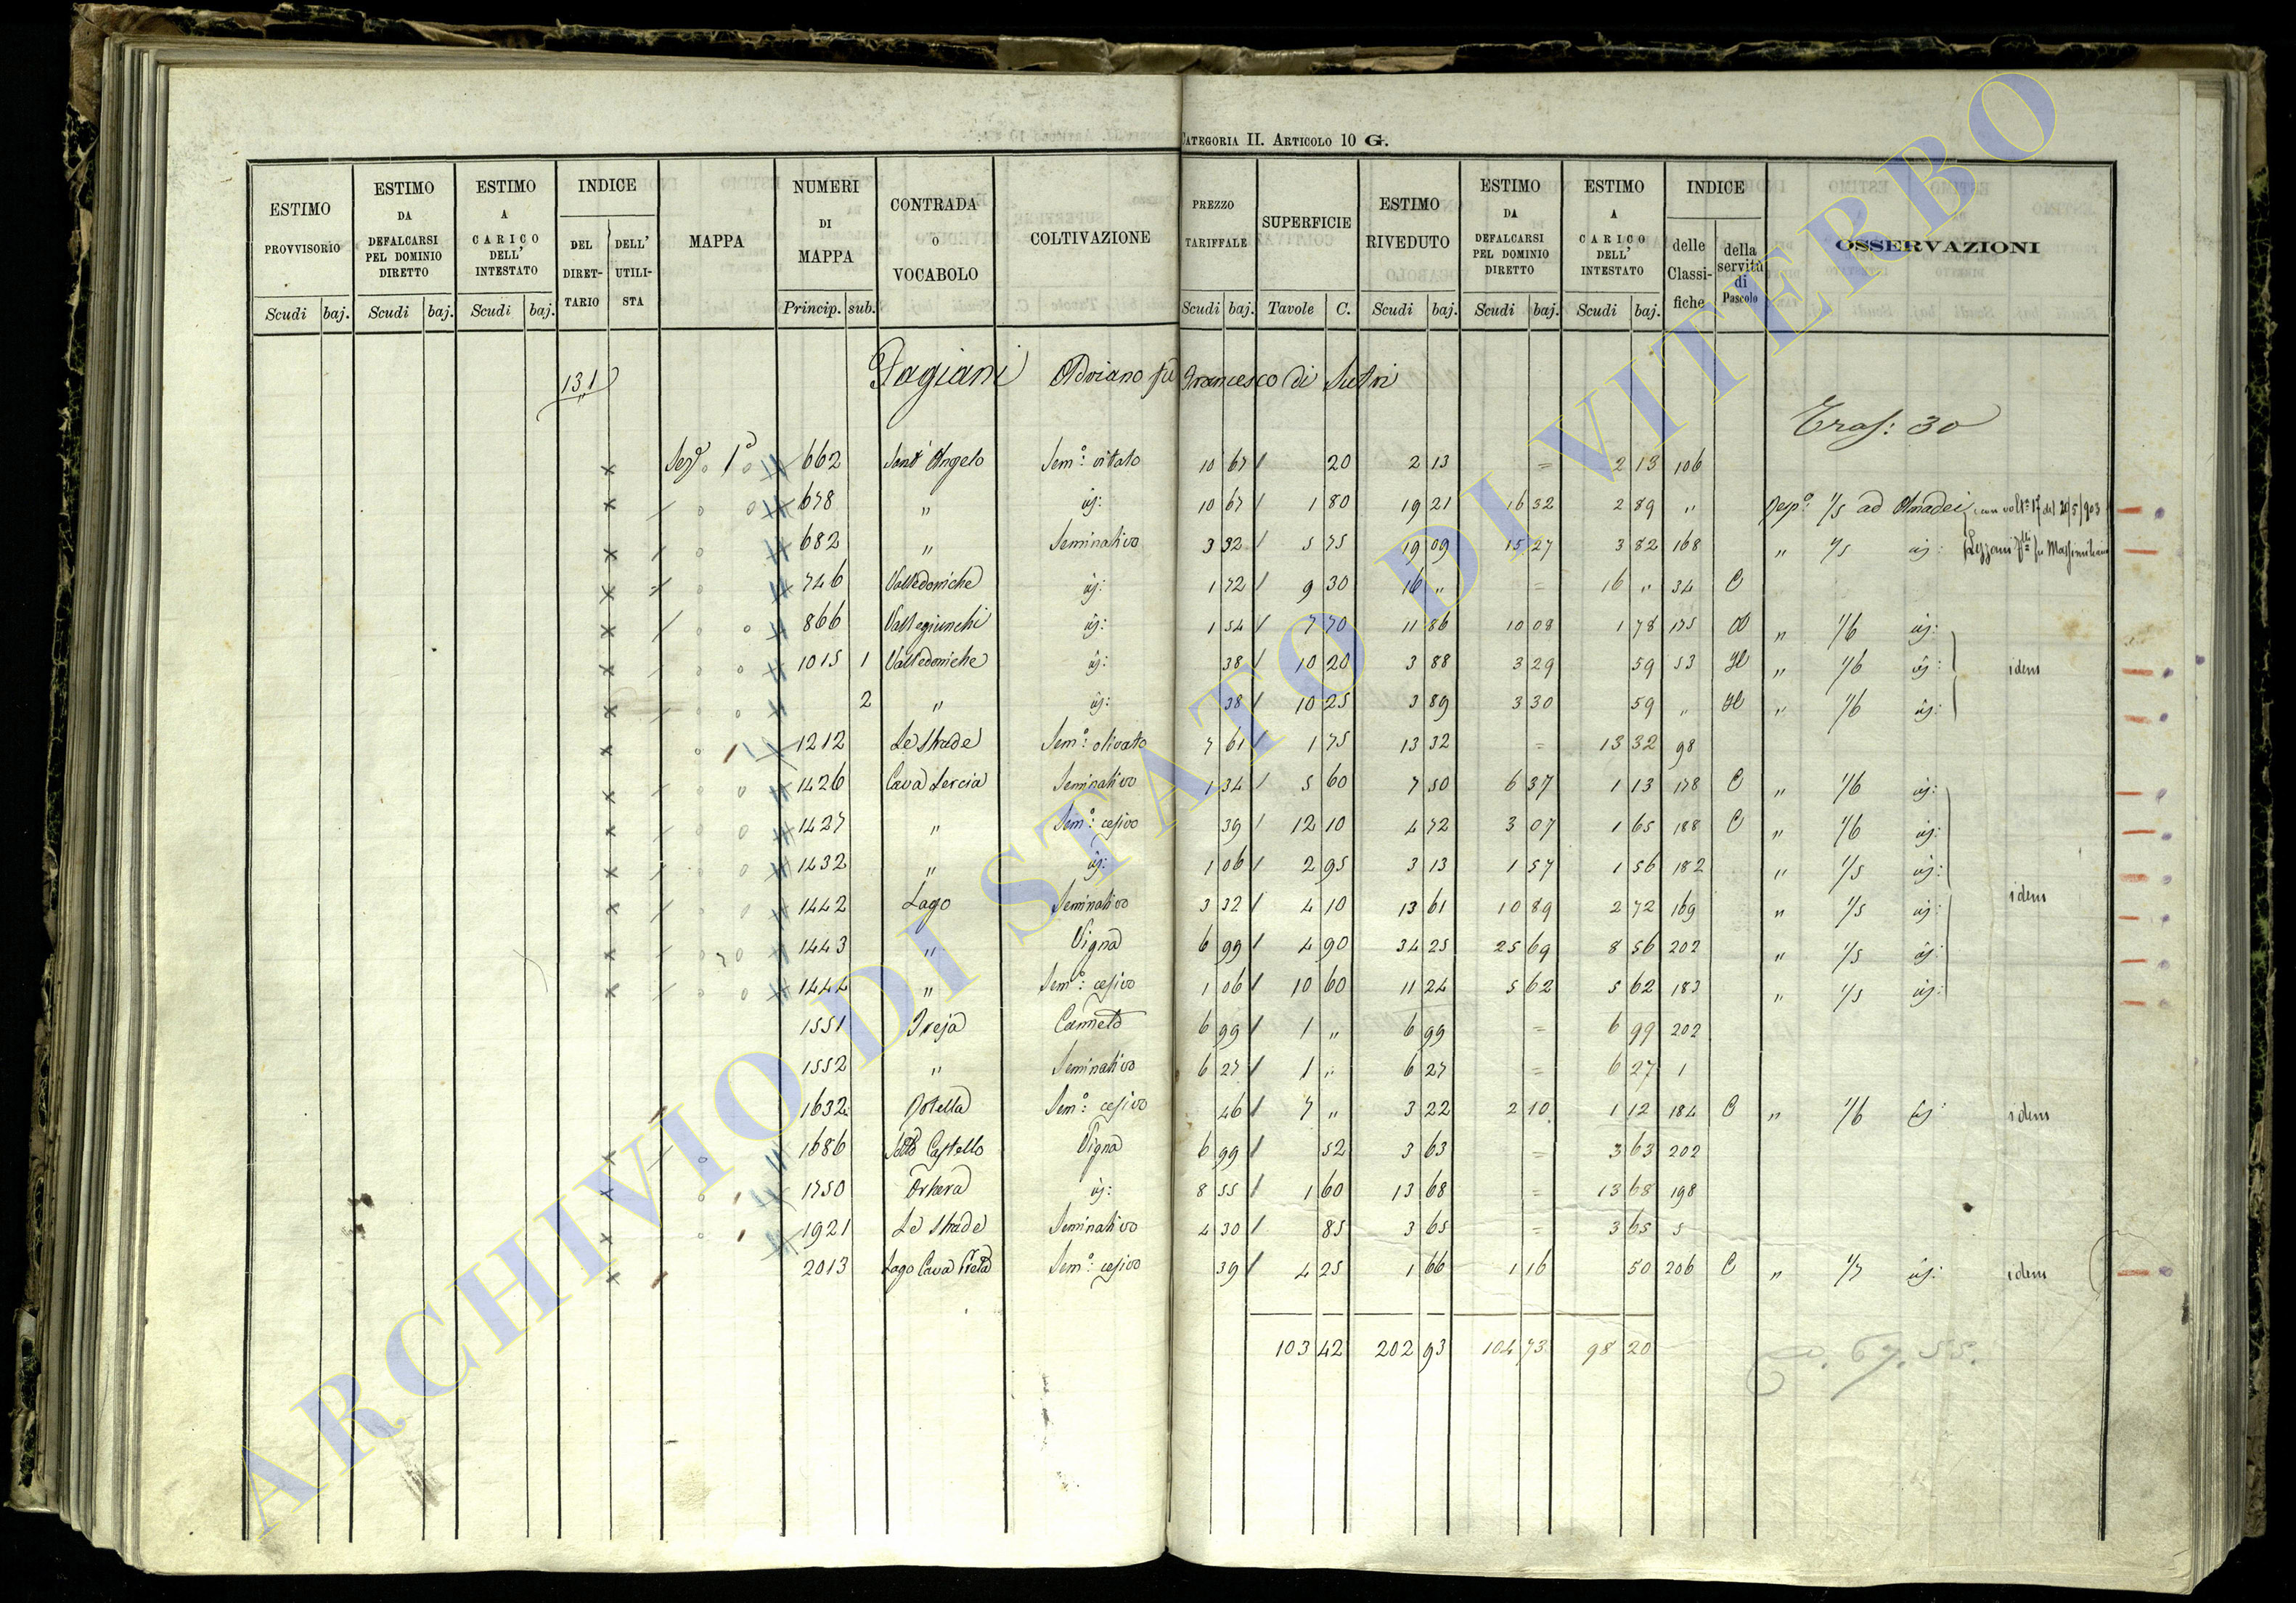 CATEGORIA II. ARTICOLO 10 G.
ESTIMO PROVVISORIO Scudi baj. ESTIMO DA DEFALCARSI PEL DOMINIO DIRETTO Scudi baj. ESTIMO A CARICO DELL' INTESTATO Scudi baj. INDICE DEL DIRETTARIO DELL' UTILISTA MAPPA NUMERI DI MAPPA Princip. sub. CONTRADA O VOCABOLO COLTIVAZIONE PREZZO TARIFFALE Scudi baj. SUPERFICIE Tavole C. ESTIMO RIVEDUTO Scudi baj. ESTIMO DA DEFALCARSI PEL DOMINIO DIRETTO Scudi baj. ESTIMO A CARICO DELL' INTESTATO Scudi baj. INDICE delle Classifiche della servitù di Pascolo OSSERVAZIONI
131 Pagiani Adriano fu Francesco di Sutri
Tras: 30
Sez. 1ª 662 Sant' Angelo Sem.º vitato 10 67 20 2 13 = 2 13 106
678 " id: 10 67 1 80 19 21 16 32 2 89 " Resp.º 1/5 ad Amadei con volt.ª 17 del 20/5/903
682 " Seminativo 3 32 5 75 19 09 15 27 3 82 168 " 1/5 id: Lezzani fu Massimiliano
746 Valledoniche id: 1 72 9 30 16 " = 16 " 34 C
866 Vallegiunchi id: 1 54 7 70 11 86 10 08 1 78 175 " 1/6 id:
1015 1 Valledoniche id: 38 10 20 3 88 3 29 59 53 H " 1/6 id: idem
2 " id: 38 10 25 3 89 3 30 59 " H " 1/6 id:
1212 Le Strade Sem.º olivato 7 61 1 75 13 32 = 13 32 98
1426 Cava Lercia Seminativo 1 34 5 60 7 50 6 37 1 13 178 C " 1/6 id:
1427 " Sem.º cesivo 39 12 10 4 72 3 07 1 65 188 C " 1/6 id:
1432 " id: 1 06 2 95 3 13 1 57 1 56 182 " 1/5 id:
1442 Lago Seminativo 3 32 4 10 13 61 10 89 2 72 169 " 1/5 id: idem
1443 " Vigna 6 99 4 90 34 25 25 69 8 56 202 " 1/5 id:
1444 " Sem.º cesivo 1 06 10 60 11 24 5 62 5 62 183 " 1/5 id:
1551 Treja Canneto 6 99 1 " 6 99 = 6 99 202
1552 " Seminativo 6 27 1 " 6 27 = 6 27 1
1632 Sem.º cesivo 46 7 " 3 22 2 10 1 12 184 C " 1/6 id: idem
1686 Sotto Castello Vigna 6 99 52 3 63 = 3 63 202
1750 id: 8 55 1 60 13 68 = 13 68 198
1921 Le Strade Seminativo 4 30 85 3 65 = 3 65 5
2013 Lago Cava Sem.º cesivo 39 4 25 1 66 1 16 50 206 C " 1/7 id: idem
103 42 202 93 104 73 98 20
67.55.
ARCHIVIO DI STATO DI VITERBO